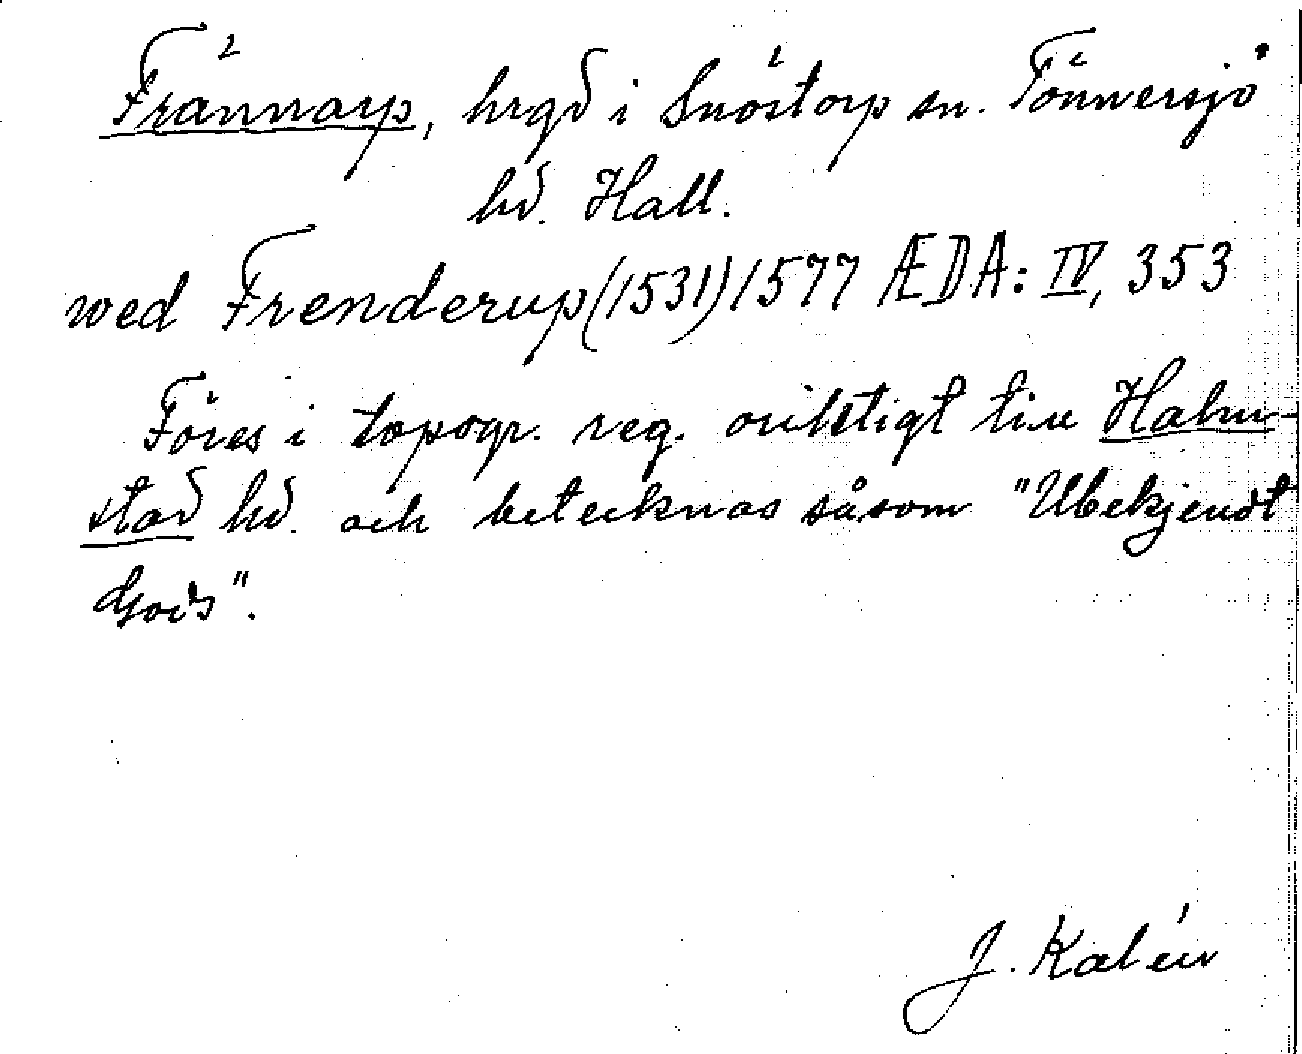 Frännarp, hrgd i Snöstorp sn. Tönnersjö
hd. Hall.
wed Frenderup (1531) 1577 ÆDA: IV, 353
Föres i topogr. reg. oriktigt till Halm-
stad hd. och betecknas såsom "Ubekjendt
Gods".
J. Kalén